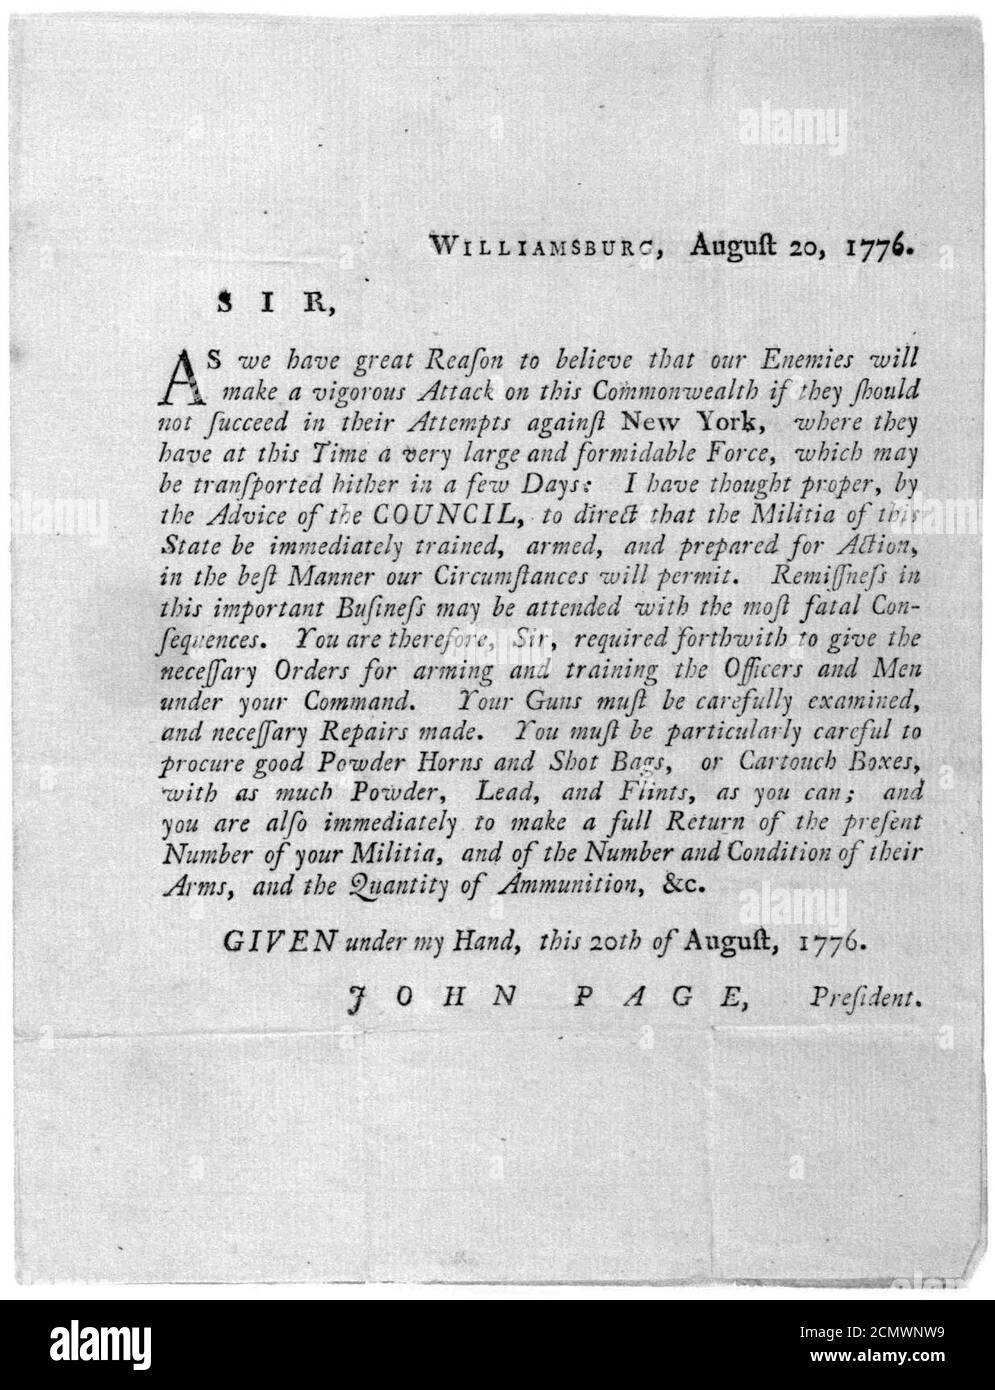 WILLIAMSBURG, Auguſt 20, 1776.
SIR,
AS we have great Reaſon to believe that our Enemies will
make a vigorous Attack on this Commonwealth if they ſhould
not ſucceed in their Attempts againſt New York, where they
have at this Time a very large and formidable Force, which may
be tranſported hither in a few Days: I have thought proper, by
the Advice of the COUNCIL, to direct that the Militia of this
State be immediately trained, armed, and prepared for Action,
in the beſt Manner our Circumſtances will permit. Remiſſneſs in
this important Buſineſs may be attended with the moſt fatal Con-
ſequences. You are therefore, Sir, required forthwith to give the
neceſſary Orders for arming and training the Officers and Men
under your Command. Your Guns muſt be carefully examined,
and neceſſary Repairs made. You muſt be particularly careful to
procure good Powder Horns and Shot Bags, or Cartouch Boxes,
with as much Powder, Lead, and Flints, as you can; and
you are alſo immediately to make a full Return of the preſent
Number of your Militia, and of the Number and Condition of their
Arms, and the Quantity of Ammunition, &c.
GIVEN under my Hand, this 20th of Auguſt, 1776.
JOHN PAGE, Preſident.
alamy
Image ID: 2CMWNW9
www.alamy.com